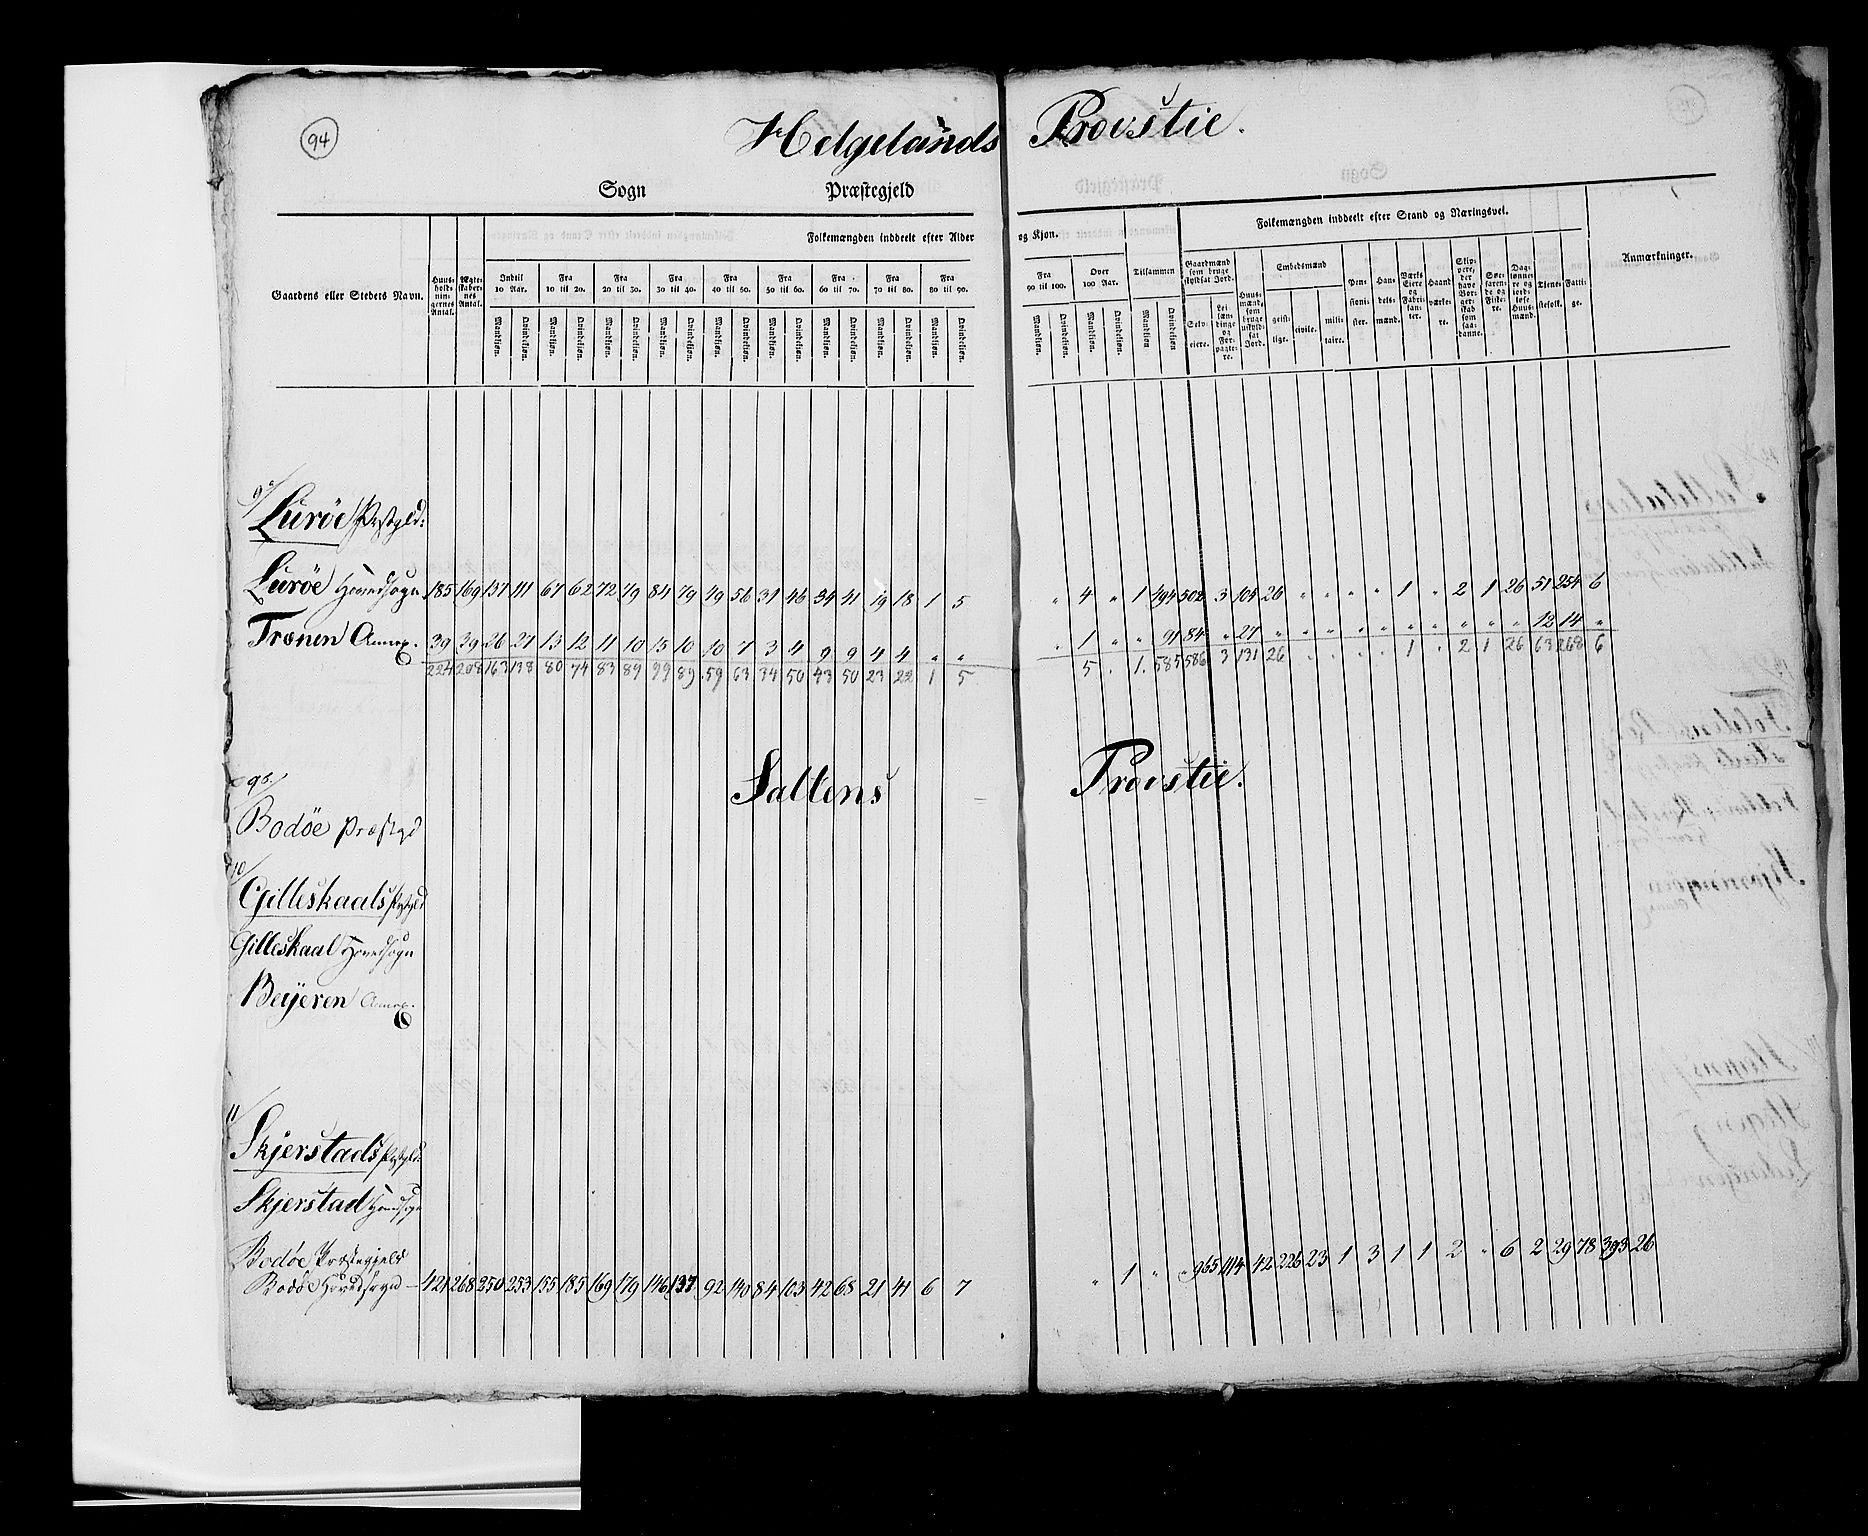 94
Helgelands Provstie.
Sogn Præstegjeld
Gaardens eller Stedets Navn. Huusholdningernes Antal. Ægteskabernes Antal. Folkemængden inddeelt efter Alder og Kjøn. Tilsammen Folkemængden inddeelt efter Stand og Næringsvei. Anmærkninger.
Indtil 10 Aar. Fra 10 til 20. Fra 20 til 30. Fra 30 til 40. Fra 40 til 50. Fra 50 til 60. Fra 60 til 70. Fra 70 til 80. Fra 80 til 90. Fra 90 til 100. Over 100 Aar.
Mandkiøn. Qvindekiøn. Mandkiøn. Qvindekiøn. Mandkiøn. Qvindekiøn. Mandkiøn. Qvindekiøn. Mandkiøn. Qvindekiøn. Mandkiøn. Qvindekiøn. Mandkiøn. Qvindekiøn. Mandkiøn. Qvindekiøn. Mandkiøn. Qvindekiøn. Mandkiøn. Qvindekiøn. Mandkiøn. Qvindekiøn. Mandkiøn Qvindekiøn
Gaardmænd som bruge skyldsat Jord. Selveiere. Leilændinge og Forpagtere. Huusmænd, som bruge uskyldsat Jord. Embedsmænd geistlige. civile. militaire. Pensionister. Handelsmænd. Værks Eiere og Fabrikanter. Haandværkere. Skippere, der have Borgerskab som saadanne. Søefarende og Fiskere. Daglønnere og jordløse Huusmænd. Tienestefolk. Fattige.
9de
Lurøe Pstgld:
Lurøe Hovedsogn 185 169 137 111 67 62 72 79 84 79 49 56 31 46 34 41 19 18 1 5 " 4 " 1 494 502 3 104 26 " " " " 1 " 2 1 26 51 254 6
Trænen Annex. 39 39 26 27 13 12 11 10 15 10 10 7 3 4 9 9 4 4 " " " 1 " " 91 84 " 27 " " " " " " " " " " 12 14 "
224 208 163 138 80 74 83 89 99 89 59 63 34 50 43 50 23 22 1 5 5 . 1. 585 586 3 131 26 . . . . 1 . 2 1 26 63 268 6
Saltens Provstie.
9b.
Bodøe Præstgd
10
Gilleskaals Pstgld
Gilleskaal Hovedsogn
Beyeren Annex.
11
Skjerstads Pstgld:
Skjerstad Hovedsogn
Bodøe Præstegjeld
Bodøe Hovedsogn 421 268 250 253 155 185 169 179 146 137 92 140 84 103 42 68 21 41 6 7 " 1 " " 965 1114 42 226 23 1 3 1 1 2 " 6 2 29 78 393 26